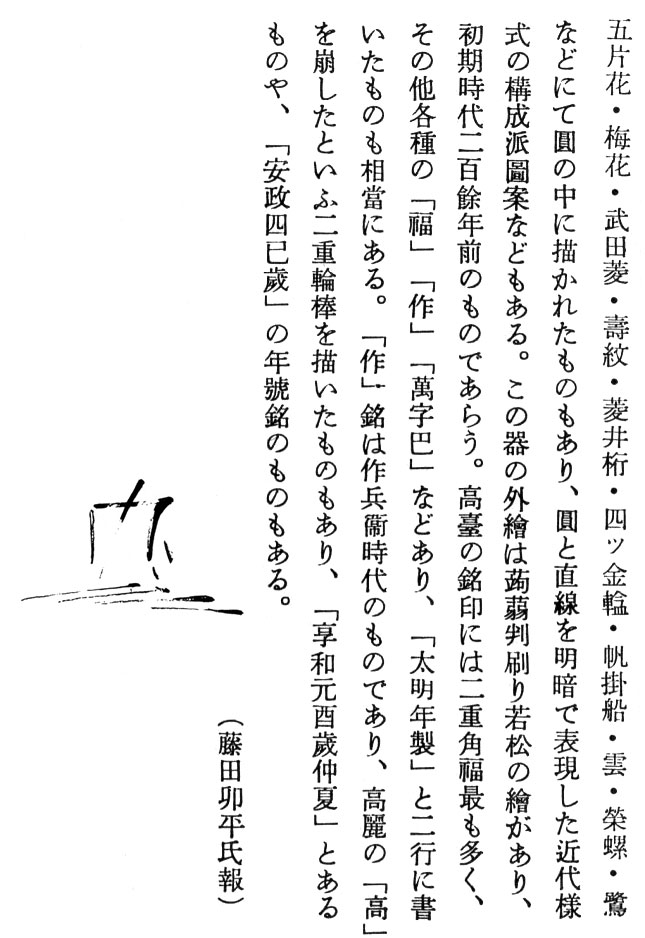 五片花・梅花・武田菱・壽紋・菱井桁・四ッ金輪・帆掛船・雲・榮螺・鷺
などにて圓の中に描かれたものもあり、圓と直線を明暗で表現した近代樣
式の構成派圖案などもある。この器の外繪は蒟蒻判刷り若松の繪があり、
初期時代二百餘年前のものであらう。高臺の銘印には二重角福最も多く、
その他各種の「福」「作」「萬字巴」などあり、「太明年製」と二行に書
いたものも相當にある。「作」銘は作兵衞時代のものであり、高麗の「高」
を崩したといふ二重輪棒を描いたものもあり、「享和元酉歲仲夏」とある
ものや、「安政四巳歲」の年號銘のものもある。
（藤田卯平氏報）